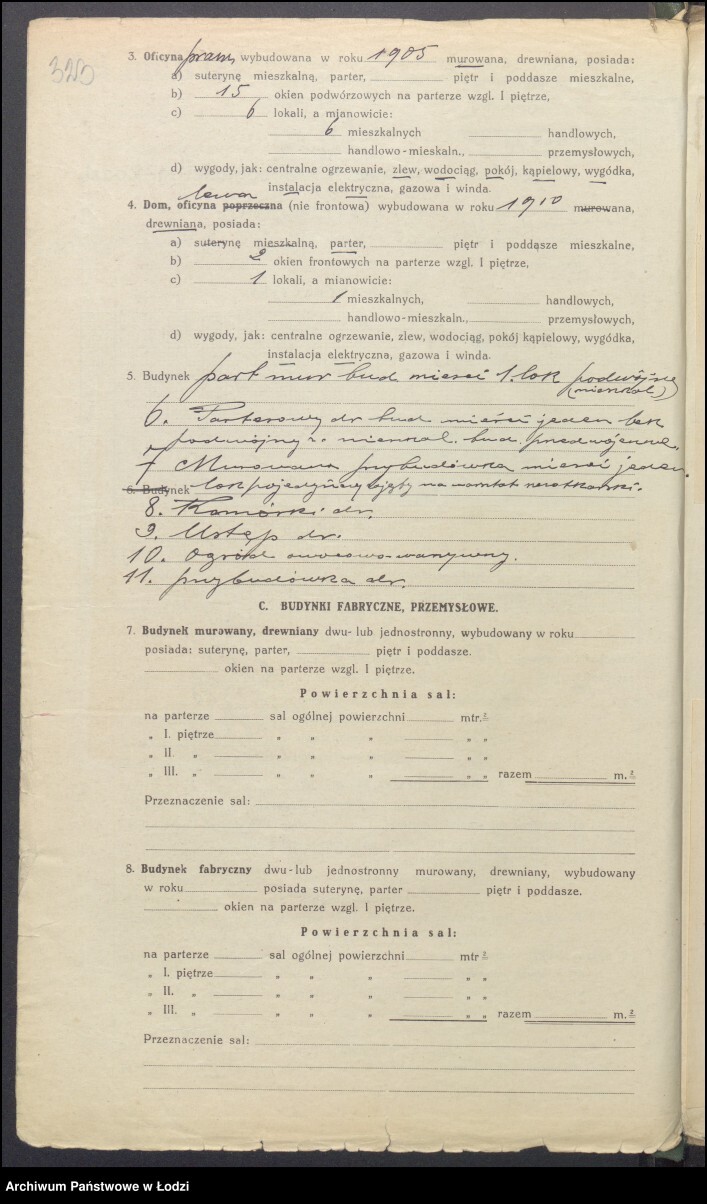 320
3. Oficyna praw. wybudowana w roku 1905 murowana, drewniana, posiada:
a) suterynę mieszkalną, parter, piętr i poddasze mieszkalne,
b) 15 okien podwórzowych na parterze wzgl. I piętrze,
c) 6 lokali, a mianowicie:
6 mieszkalnych handlowych,
handlowo-mieskaln., przemysłowych,
d) wygody, jak: centralne ogrzewanie, zlew, wodociąg, pokój, kąpielowy, wygódka,
instalacja elektryczna, gazowa i winda.
lewa
4. Dom, oficyna poprzeczna (nie frontowa) wybudowana w roku 1910 murowana,
drewniana, posiada:
a) suterynę mieszkalną, parter, piętr i poddasze mieszkalne,
b) 2 okien frontowych na parterze wzgl. I piętrze,
c) 1 lokali, a mianowicie:
1 mieszkalnych, handlowych,
handlowo-mieszkaln., przemysłowych,
d) wygody, jak: centralne ogrzewanie, zlew, wodociąg, pokój kąpielowy, wygódka,
instalacja elektryczna, gazowa i winda.
5. Budynek part mur bud. mieści 1. lok podwójny
(mieszkal.)
6. Parterowy dr. bud. mieści jeden lok
podwójny mieszkal. bud. przedwojenne.
7 Murowana przybudówka mieści jeden
6. Budynek lok pojedyńczy zajęty na warsztat
8. Komórki dr.
9. Ustęp dr.
10. Ogród owocowo-warzywny.
11. przybudówka dr.
C. BUDYNKI FABRYCZNE, PRZEMYSŁOWE.
7. Budynek murowany, drewniany dwu- lub jednostronny, wybudowany w roku
posiada: suterynę, parter, piętr i poddasze.
okien na parterze wzgl. I piętrze.
Powierzchnia sal:
na parterze sal ogólnej powierzchni mtr.²
„ I. piętrze „ „ „ „ „
„ II. „ „ „ „ „ „
„ III. „ „ „ „ „ „ razem m.²
Przeznaczenie sal:
8. Budynek fabryczny dwu-lub jednostronny murowany, drewniany, wybudowany
w roku posiada suterynę, parter piętr i poddasze.
okien na parterze wzgl. I piętrze.
Powierzchnia sal:
na parterze sal ogólnej powierzchni mtr²
„ I. piętrze „ „ „ „ „
„ II. „ „ „ „ „ „
„ III. „ „ „ „ „ „ razem m.²
Przeznaczenie sal:
Archiwum Państwowe w Łodzi